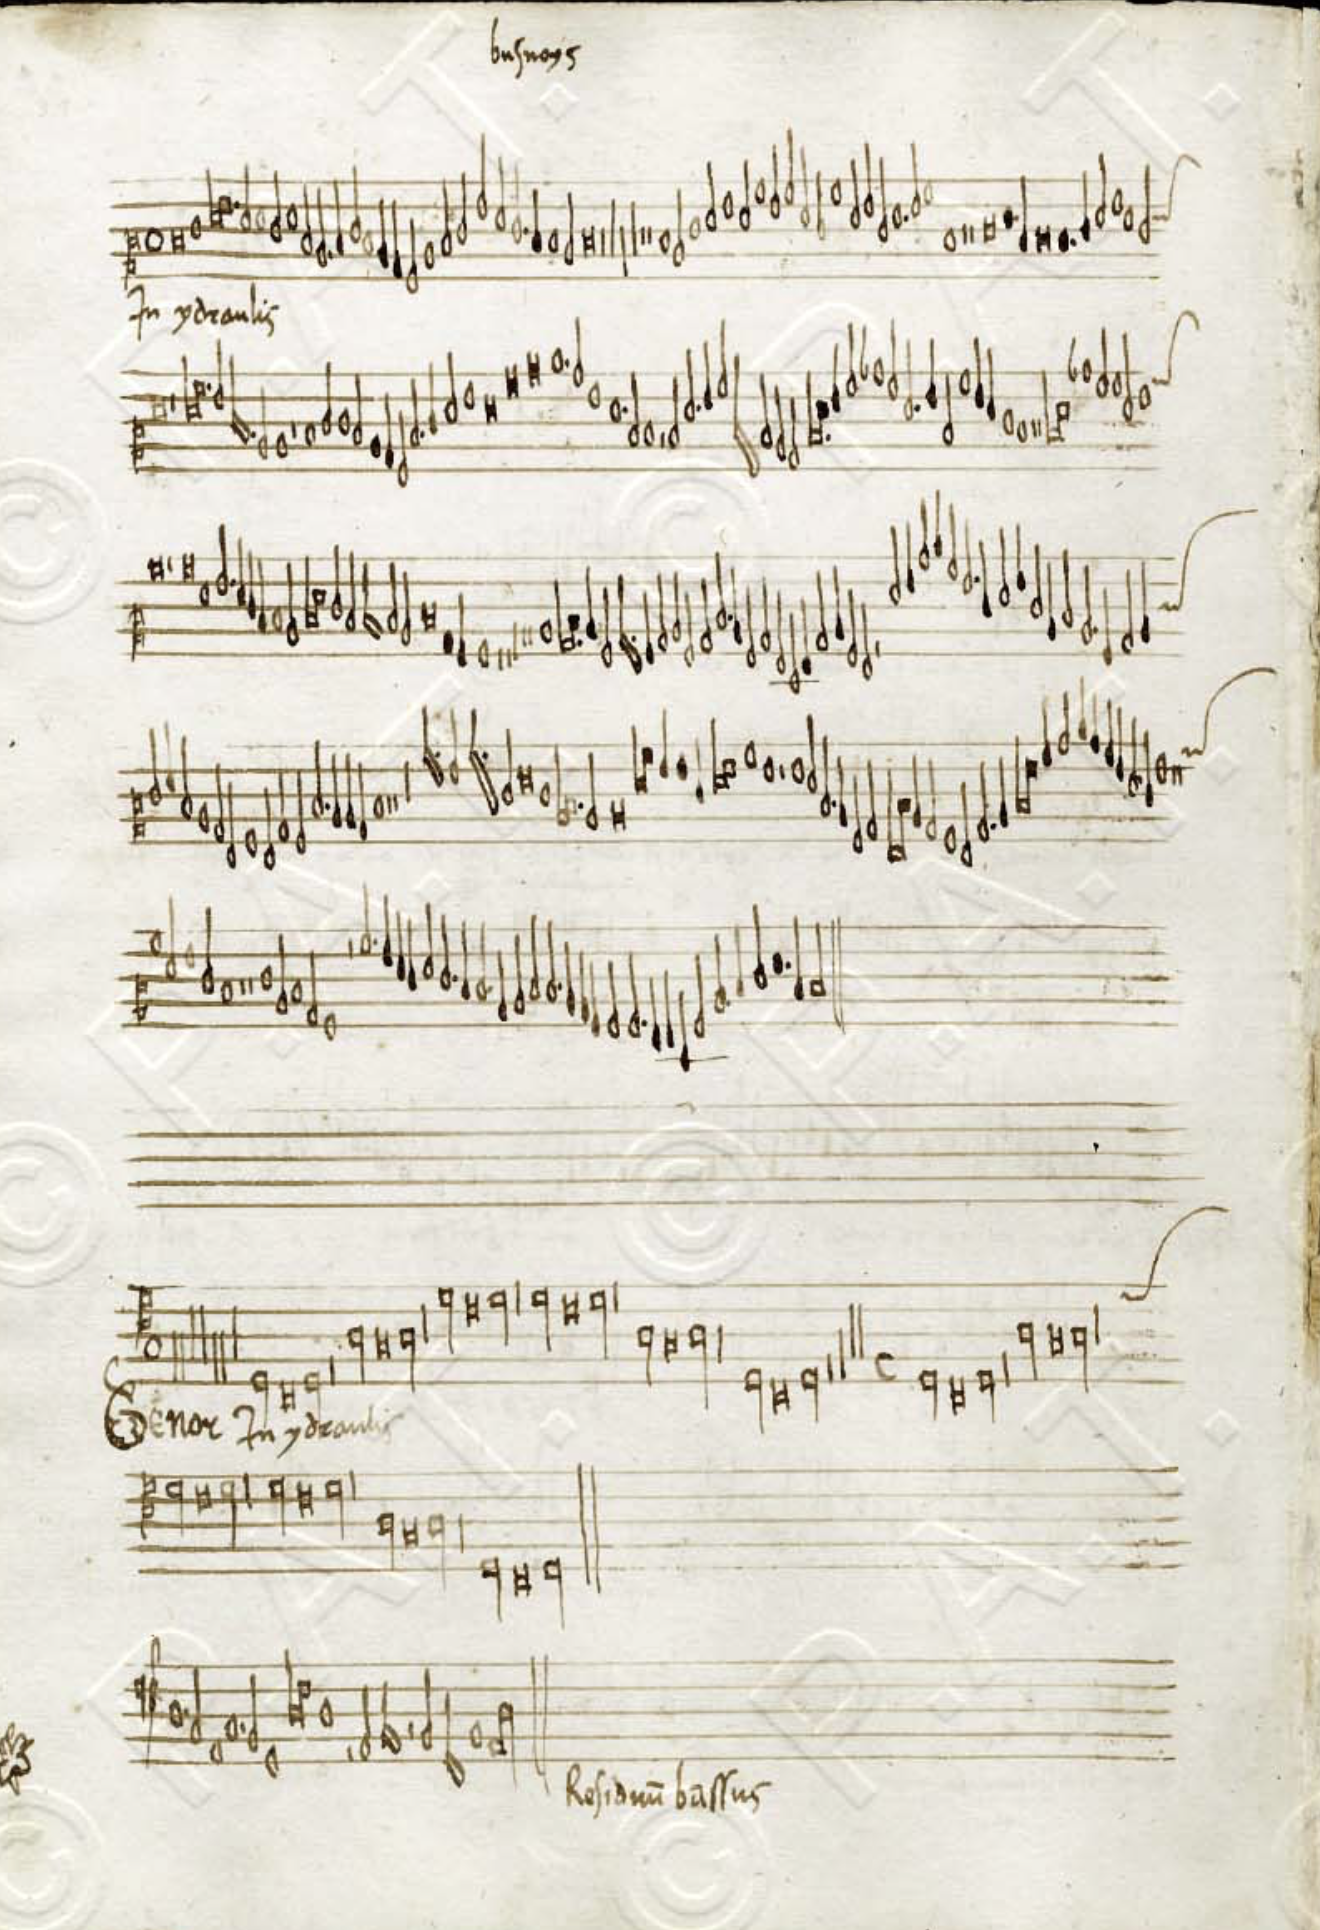 busnoys
In ydraulis
Tenor In ydraulis
Residuũ bãssus
© P.A.T.